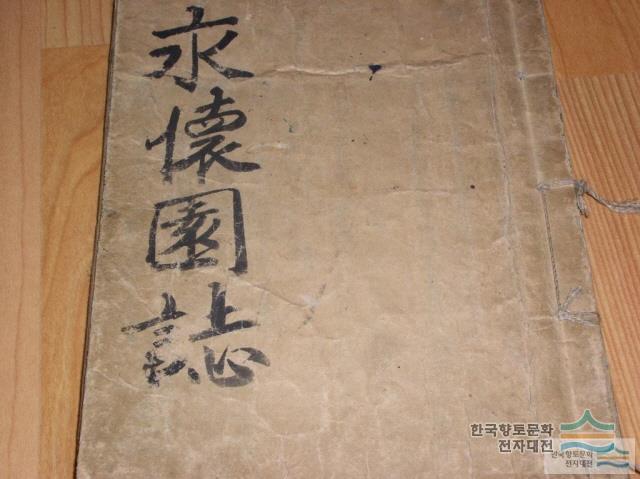 永懷園誌
한국향토문화
전자대전
한국향토문화
전자대전